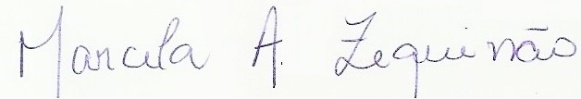 Marcela A. Zequinão